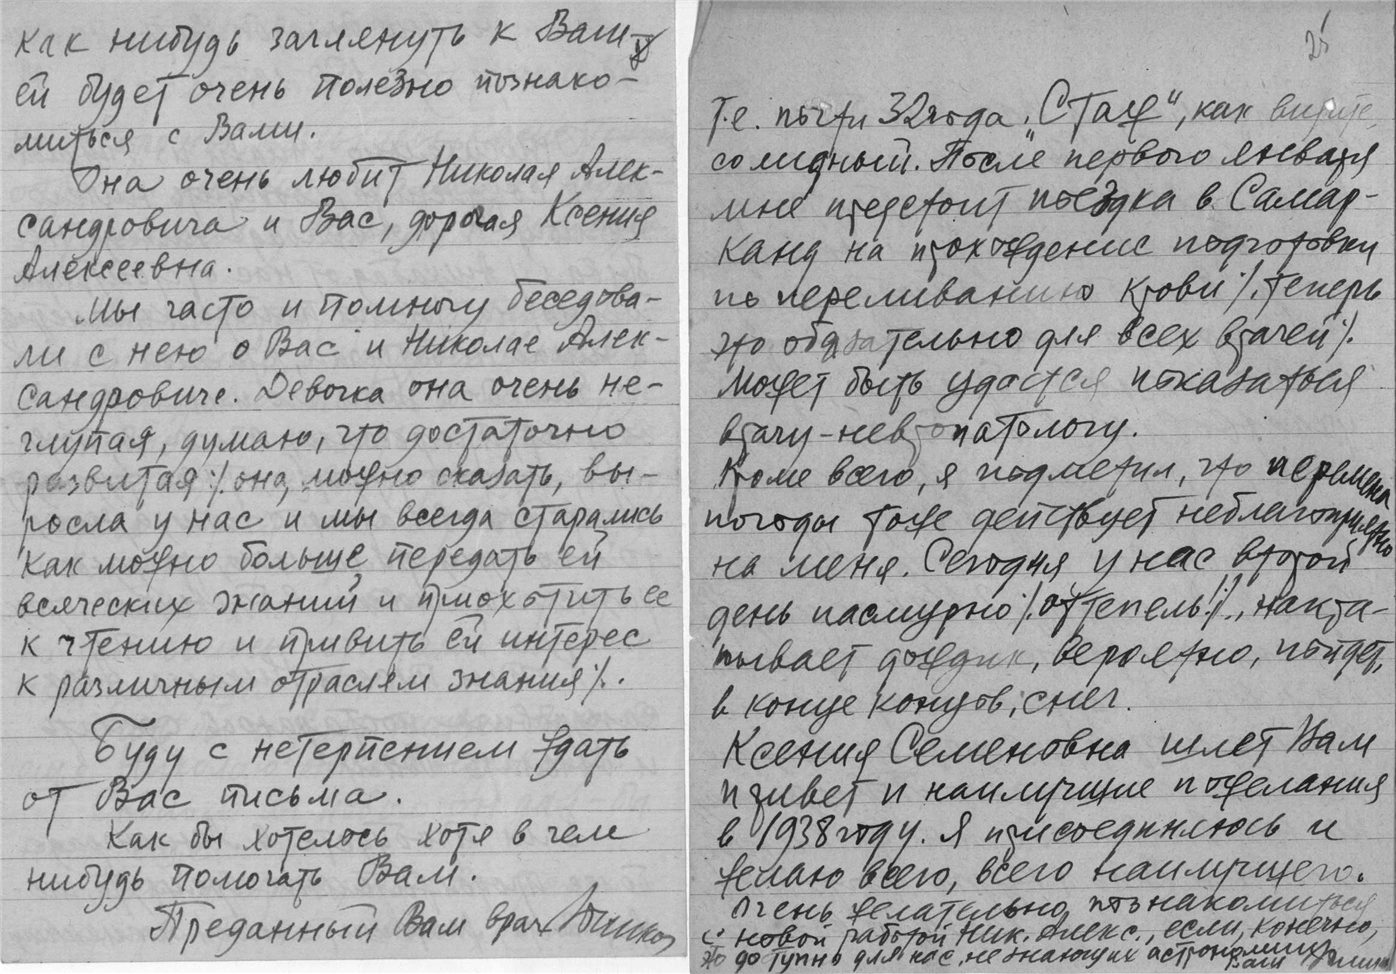 как нибудь заглянуть к Вам
ей будет очень полезно познако-
миться с Вами.
Она очень любит Николая Алек-
сандровича и Вас, дорогая Ксения
Алексеевна.
Мы часто и помногу беседова-
ли с нею о Вас и Николае Алек-
сандровиче. Девочка она очень не-
глупая, думаю, что достаточно
развитая ·/. она, можно сказать, вы-
росла у нас и мы всегда старались
как можно больше передать ей
всяческих знаний и приохотить ее
к чтению и привить ей интерес
к различным отраслям знания ·/..
Буду с нетерпением ждать
от Вас письма.
Как бы хотелось хотя в чем
нибудь помогать Вам.
Преданный Вам врач
25
т.е. почти 32 года. „Стаж“, как видите,
солидный. После первого января
мне предстоит поездка в Самар-
канд на прохождение подготовки
по переливанию крови ·/. теперь
это обязательно для всех врачей ·/.
Может быть удастся показаться
врачу-невропатологу.
Кроме всего, я подметил, что перемена
погоды тоже действует неблагоприятно
на меня. Сегодня у нас второй
день пасмурно ·/. оттепель! ·/., накра-
пывает дождик, вероятно, пойдет,
в конце концов, снег.
Ксения Семеновна шлет Вам
привет и наилучшие пожелания
в 1938 году. Я присоединяюсь и
желаю всего, всего наилучшего.
Очень желательно познакомиться
с новой работой Ник. Алекс., если, конечно,
это доступно для нас, не знающих астрономии.
Ваш